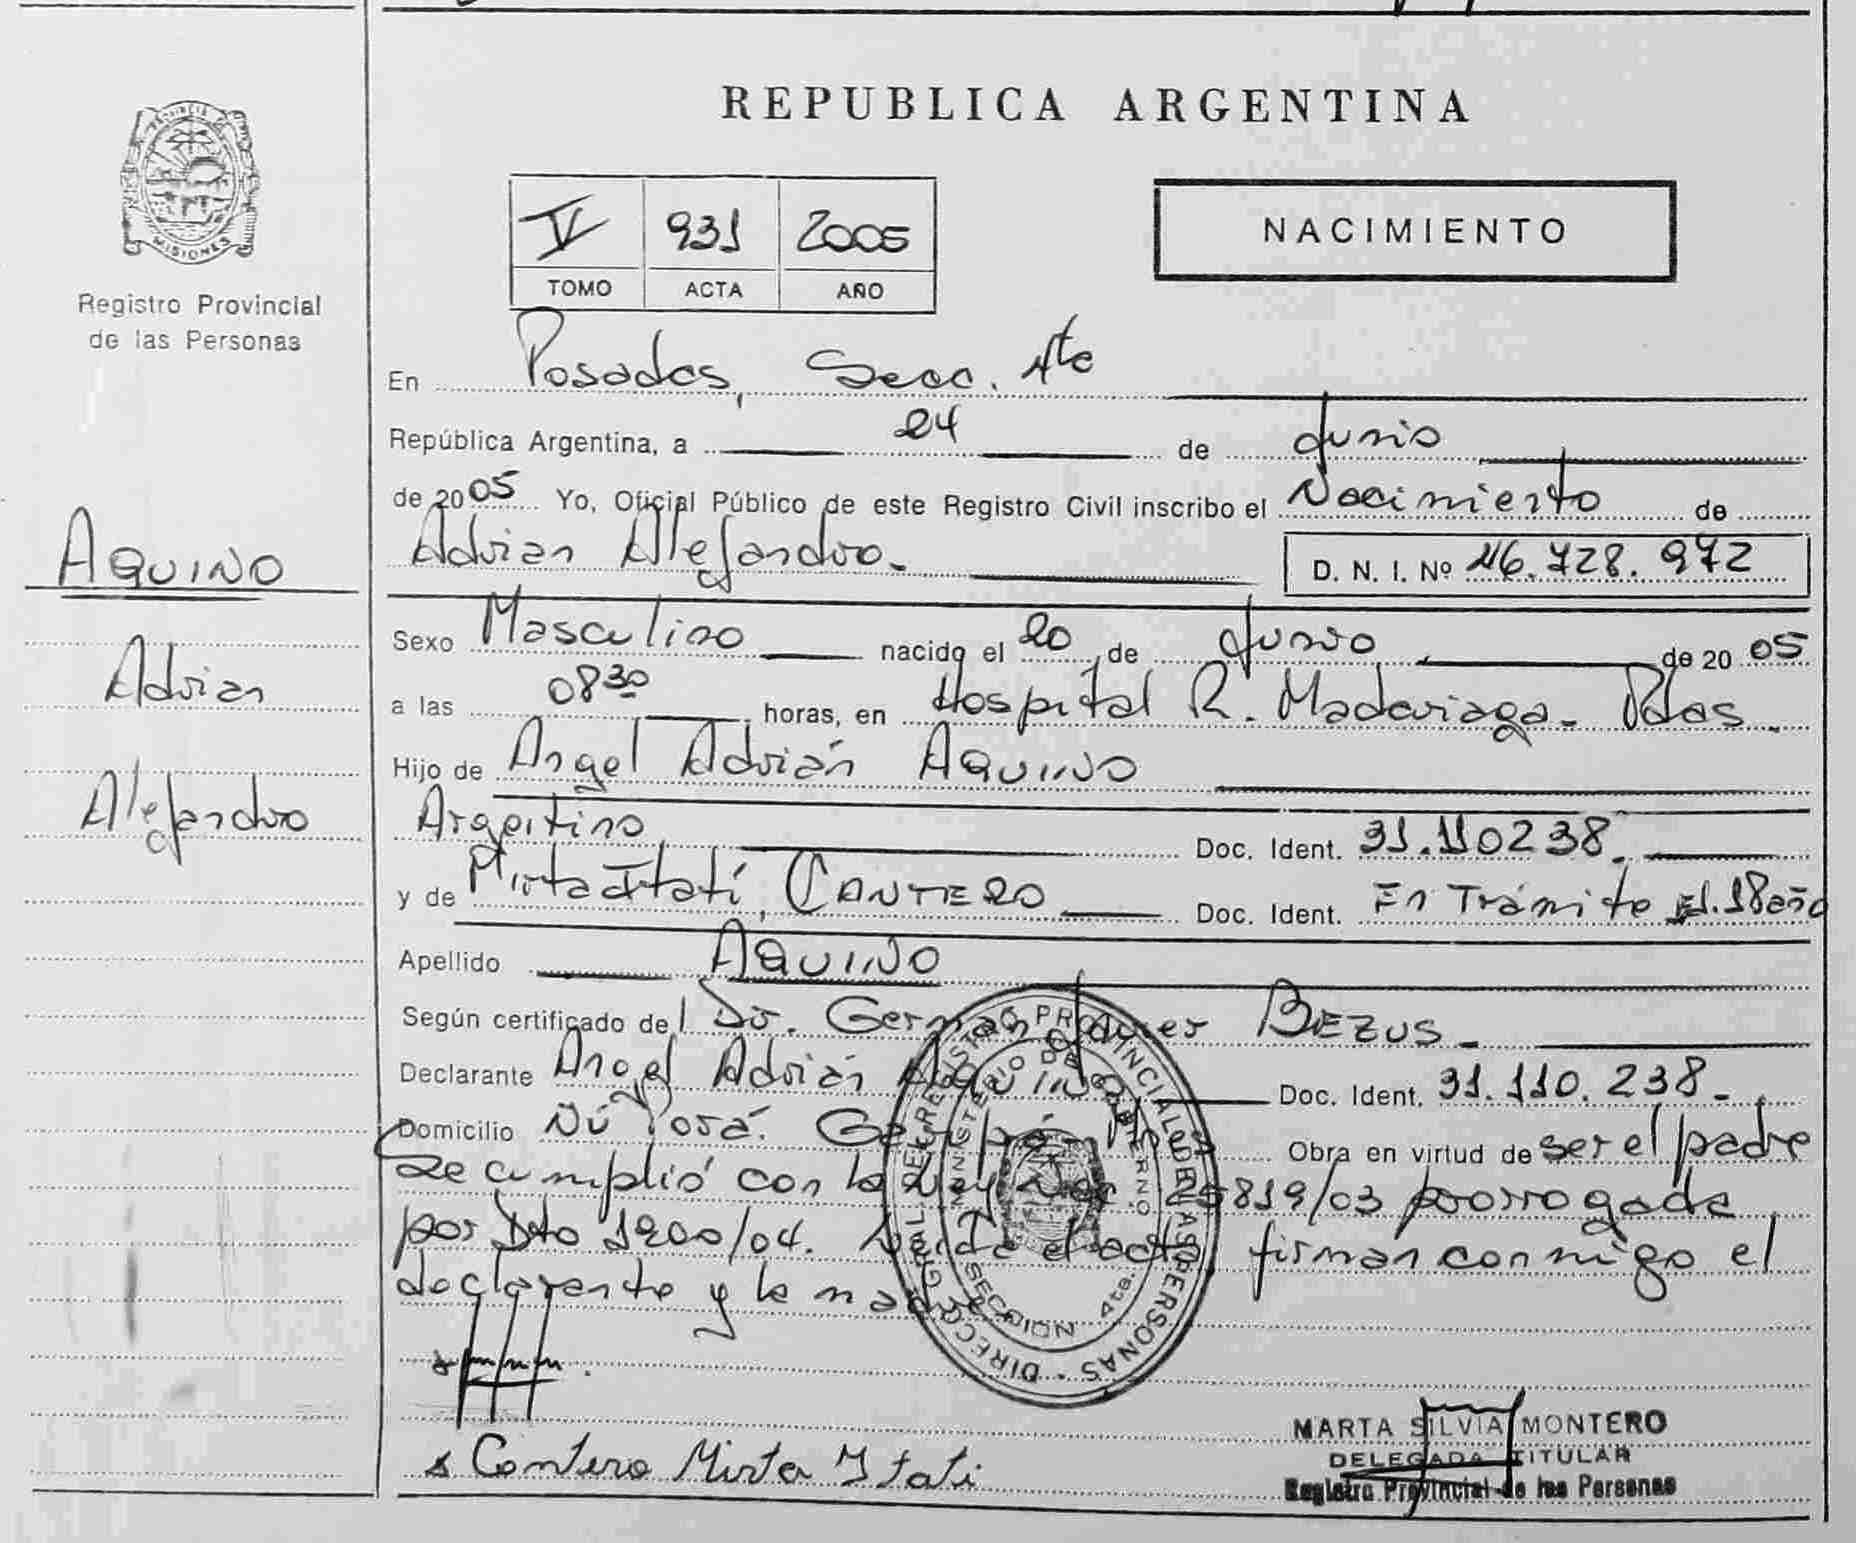 REPUBLICA ARGENTINA
PROVINCIA DE MISIONES
Registro Provincial
de las Personas
IV 931 2005
TOMO ACTA AÑO
NACIMIENTO
En Posadas, Secc. 4ta
República Argentina, a 24 de Junio
de 2005 Yo, Oficial Público de este Registro Civil inscribo el Nacimiento de
Adrian Alejandro. D. N. I. Nº 46.728.972
AQUINO
Adrian
Alejandro
Sexo Masculino nacido el 20 de Junio de 2005
a las 08 30 horas, en Hospital R. Madariaga - Pdas
Hijo de Angel Adrián AQUINO
Argentino Doc. Ident. 31.110238.
y de Mirta Itatí, CANTERO Doc. Ident. En Trámite 18 año
Apellido AQUINO
Según certificado del Dr. German Javier BEZUS
Declarante Angel Adrián Aquino Doc. Ident. 31.110.238
Domicilio Ñú Porá. Garupá - Mnes Obra en virtud de ser el padre
se cumplió con la Ley Nac. 25819/03 prorrogada
por Dto 1200/04. Leída el acta firman conmigo el
declarante y la madre
Cantero Mirta Itati
DIRECC. GRAL. DEL REGISTRO PROVINCIAL DE LAS PERSONAS
MINISTERIO DE GOBIERNO
SECCION 4ta.
MARTA SILVIA MONTERO
DELEGADA TITULAR
Registro Provincial de las Personas